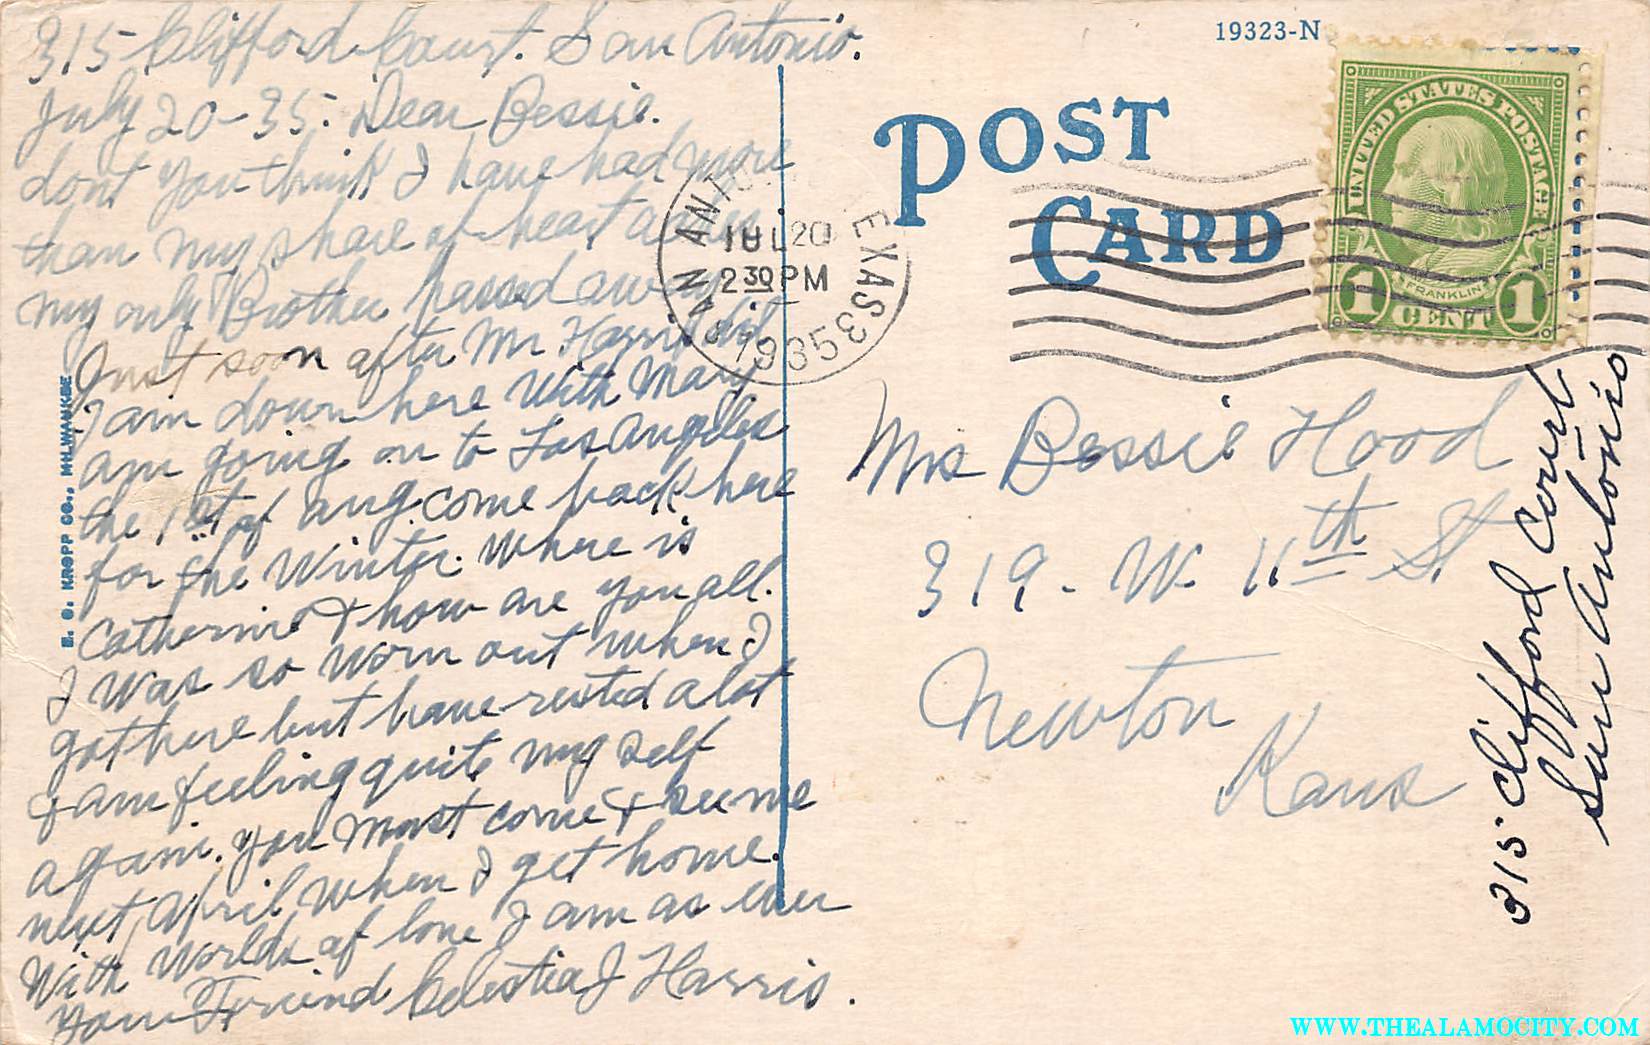 315 Clifford Court. San Antonio.
July 20-35. Dear Bessie.
dont you think I have had more
than my share of heart aches
my only Brother passed away
Just soon after Mr Harris did
I am down here with Mary
am going on to Los Angeles
the 1st of aug. come back here
for the Winter. Where is
Catherine & how are you all.
I was so worn out when I
got here but have rested a lot
& am feeling quite my self
again. you must come & see me
next April when I get home.
With worlds of love I am as ever
Your Friend Celestia J Harris.
E. C. KROPP CO., MILWAUKEE
19323-N
POST
CARD
SAN ANTONIO TEXAS
JUL 20
2 30 PM
1935
3
UNITED STATES POSTAGE
FRANKLIN
1 CENT 1
Mrs Bessie Hood
319 - W. 11th St
Newton
Kans
315 Clifford Court
San Antonio
WWW.THEALAMOCITY.COM